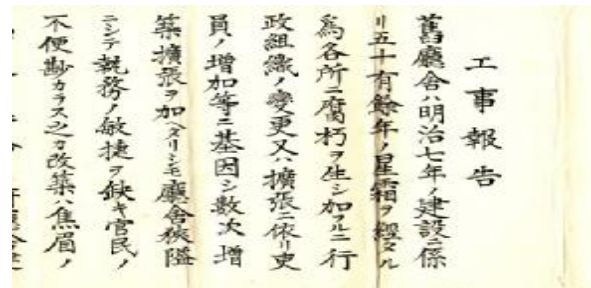 工事報告
舊廳舍ハ明治七年ノ建設ニ係
リ五十有餘年ノ星霜ヲ經タル
為各所ニ腐朽ヲ生シ加フルニ行
政組織ノ變更又ハ擴張ニ依リ吏
員ノ增加等ニ基因シ數次增
築擴張ヲ加ヘタリシモ廳舍狹隘
ニシテ執務ノ敏捷ヲ缺キ官民ノ
不便尠カラス之カ改築ハ焦眉ノ